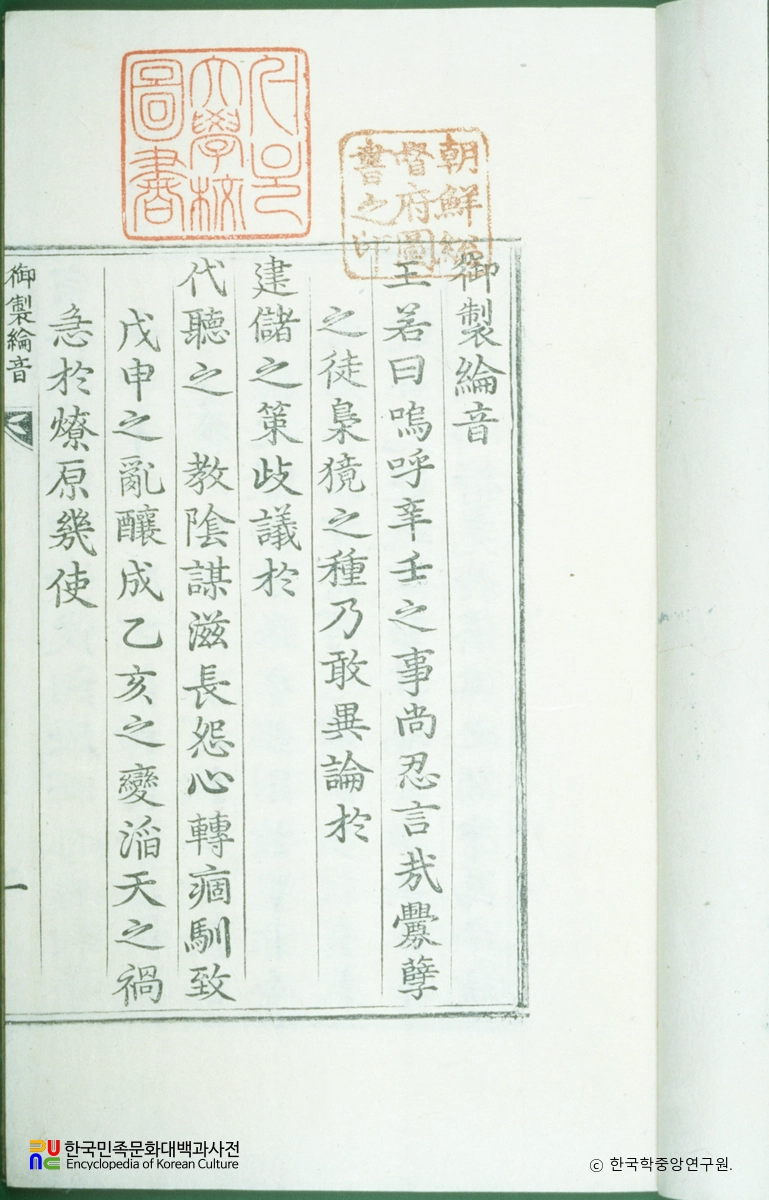 서울
大學校
圖書
朝鮮総
督府圖
書之印
御製綸音
王若曰嗚呼辛壬之事尚忍言哉釁孽
之徒梟獍之種乃敢異論於
建儲之策歧議於
代聽之 教陰謀滋長怨心轉痼馴致
戊申之亂釀成乙亥之變滔天之禍
急於燎原幾使
御製綸音 一
한국민족문화대백과사전
Encyclopedia of Korean Culture
© 한국학중앙연구원.